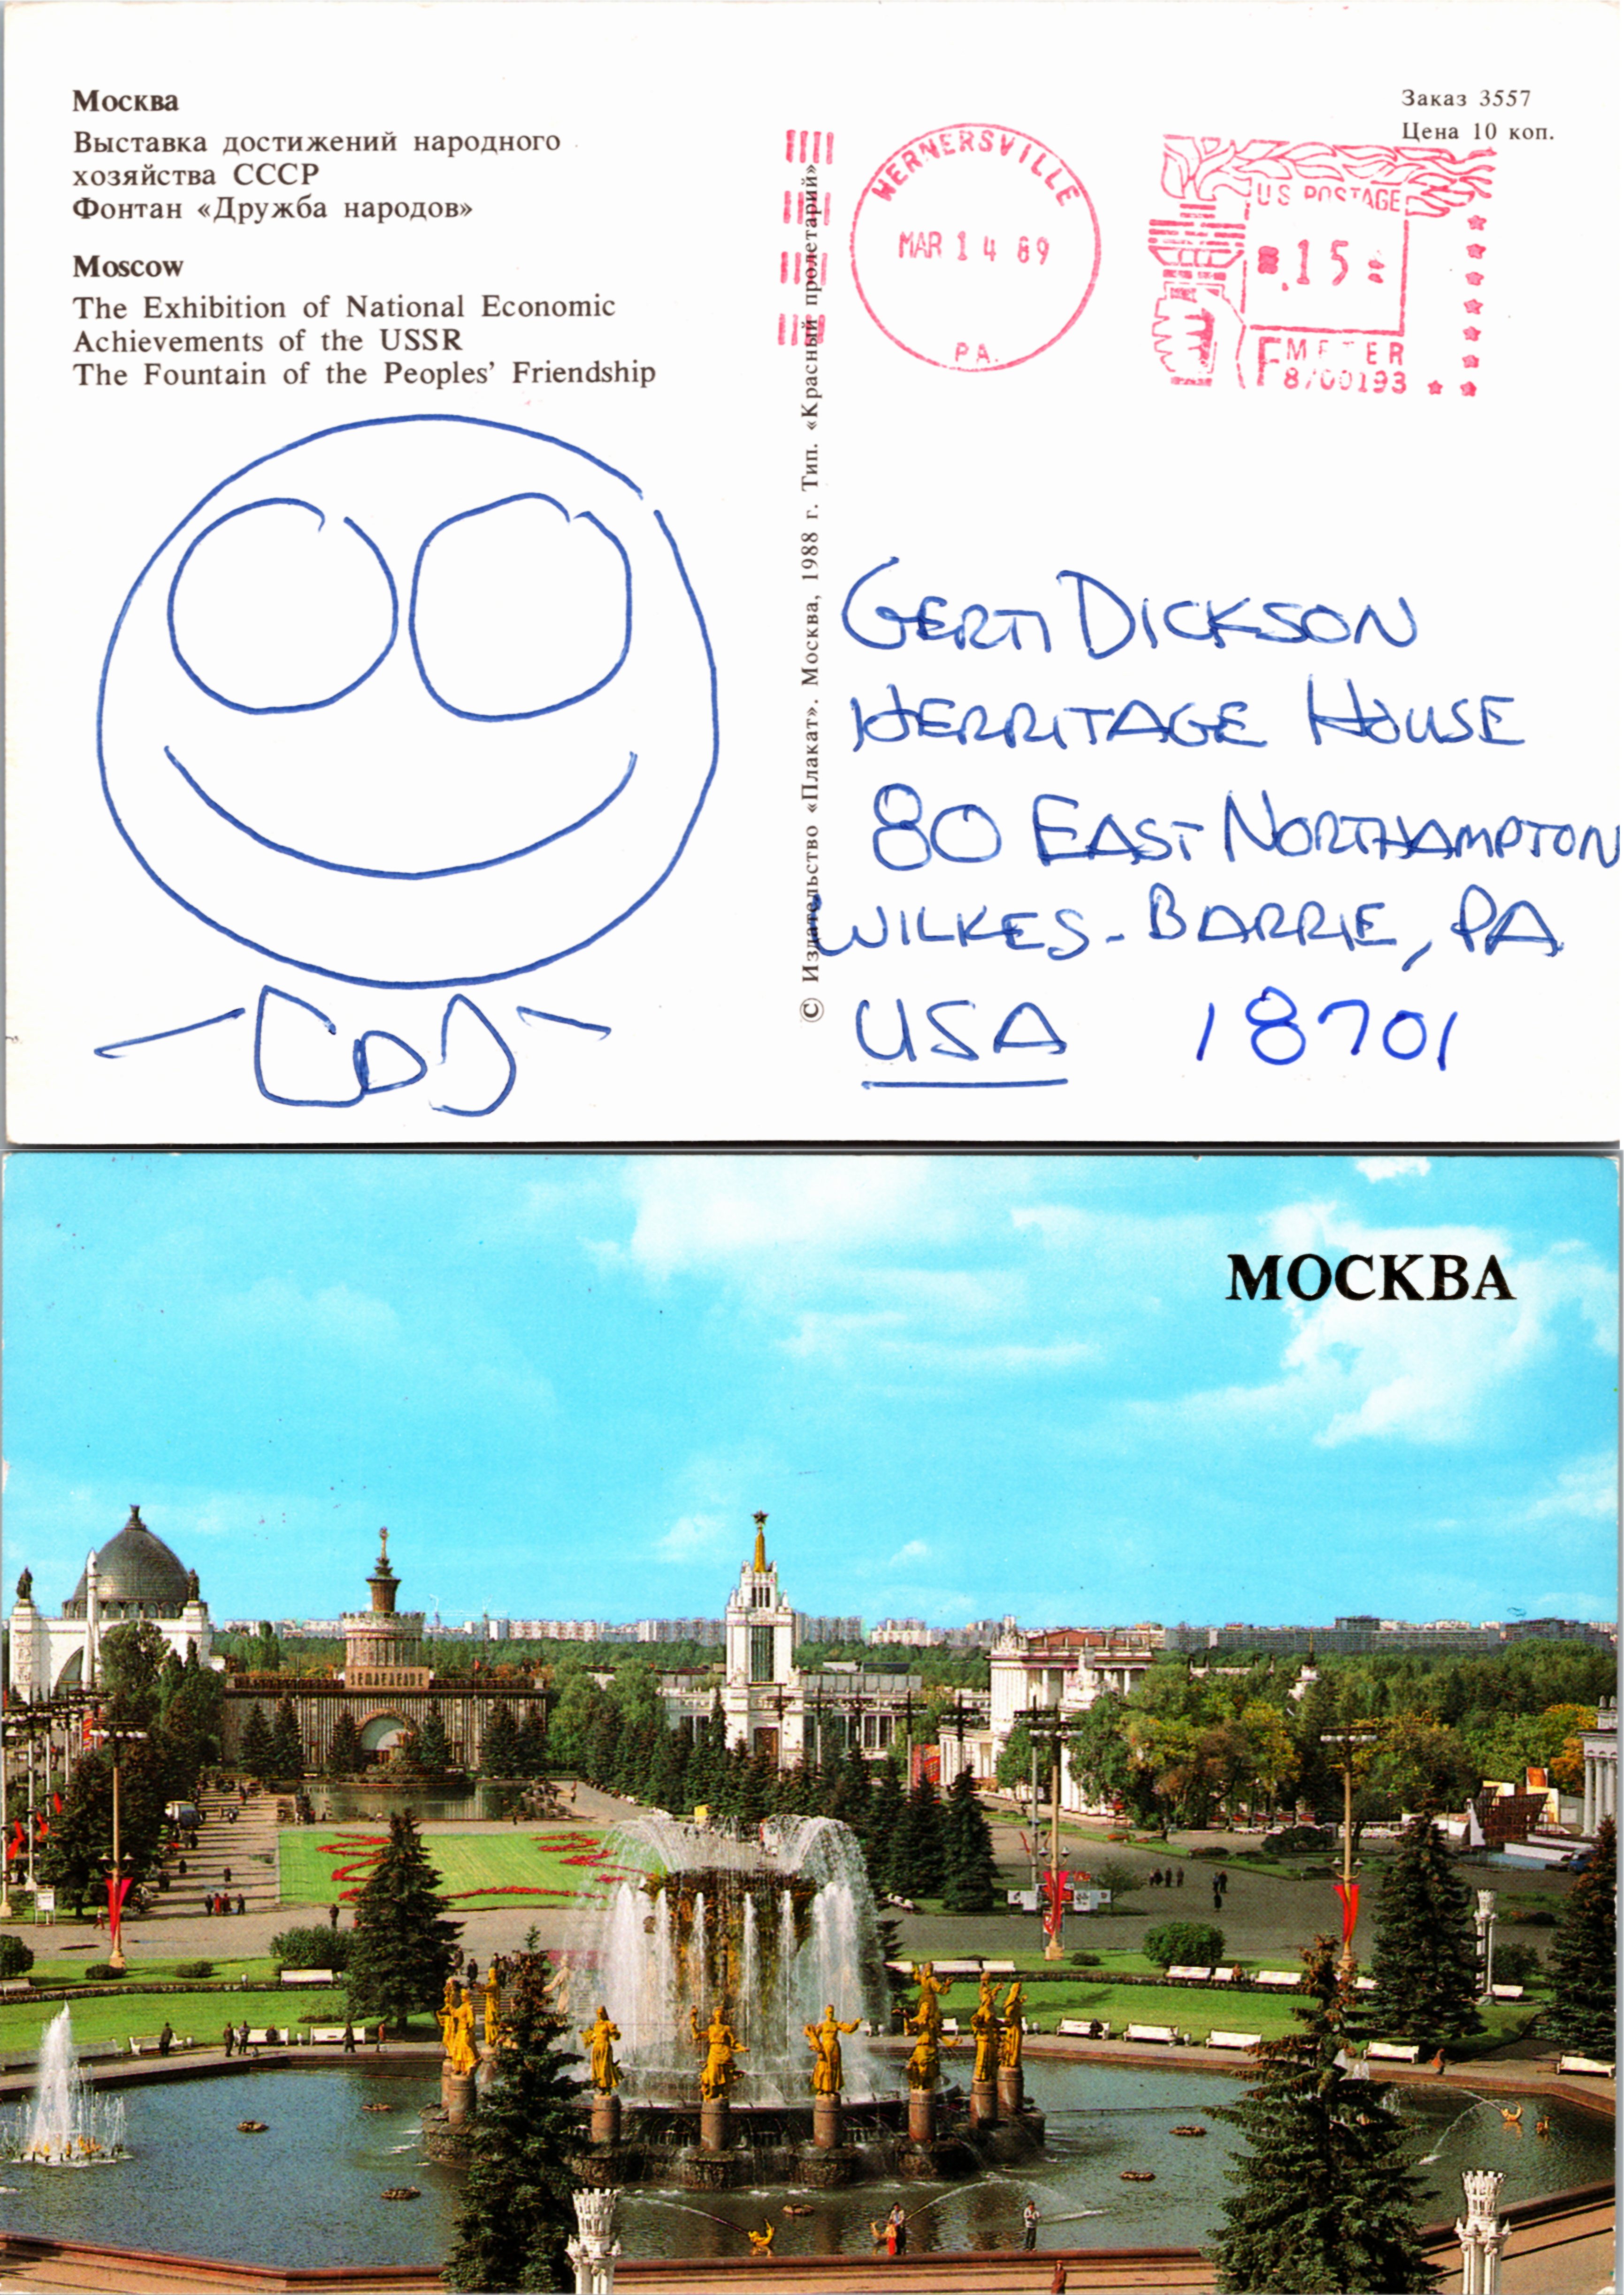 Москва
Выставка достижений народного
хозяйства СССР
Фонтан «Дружба народов»
Moscow
The Exhibition of National Economic
Achievements of the USSR
The Fountain of the Peoples' Friendship
© Издательство «Плакат». Москва, 1988 г. Тип. «Красный пролетарий»
Заказ 3557
Цена 10 коп.
WERNERSVILLE
MAR 14 89
PA.
US POSTAGE
.15
METER
GERTI DICKSON
HERRITAGE HOUSE
80 EAST NORTHAMPTON
WILKES-BARRIE, PA
USA 18701
МОСКВА
ЗЕМЛЕДЕЛИЕ